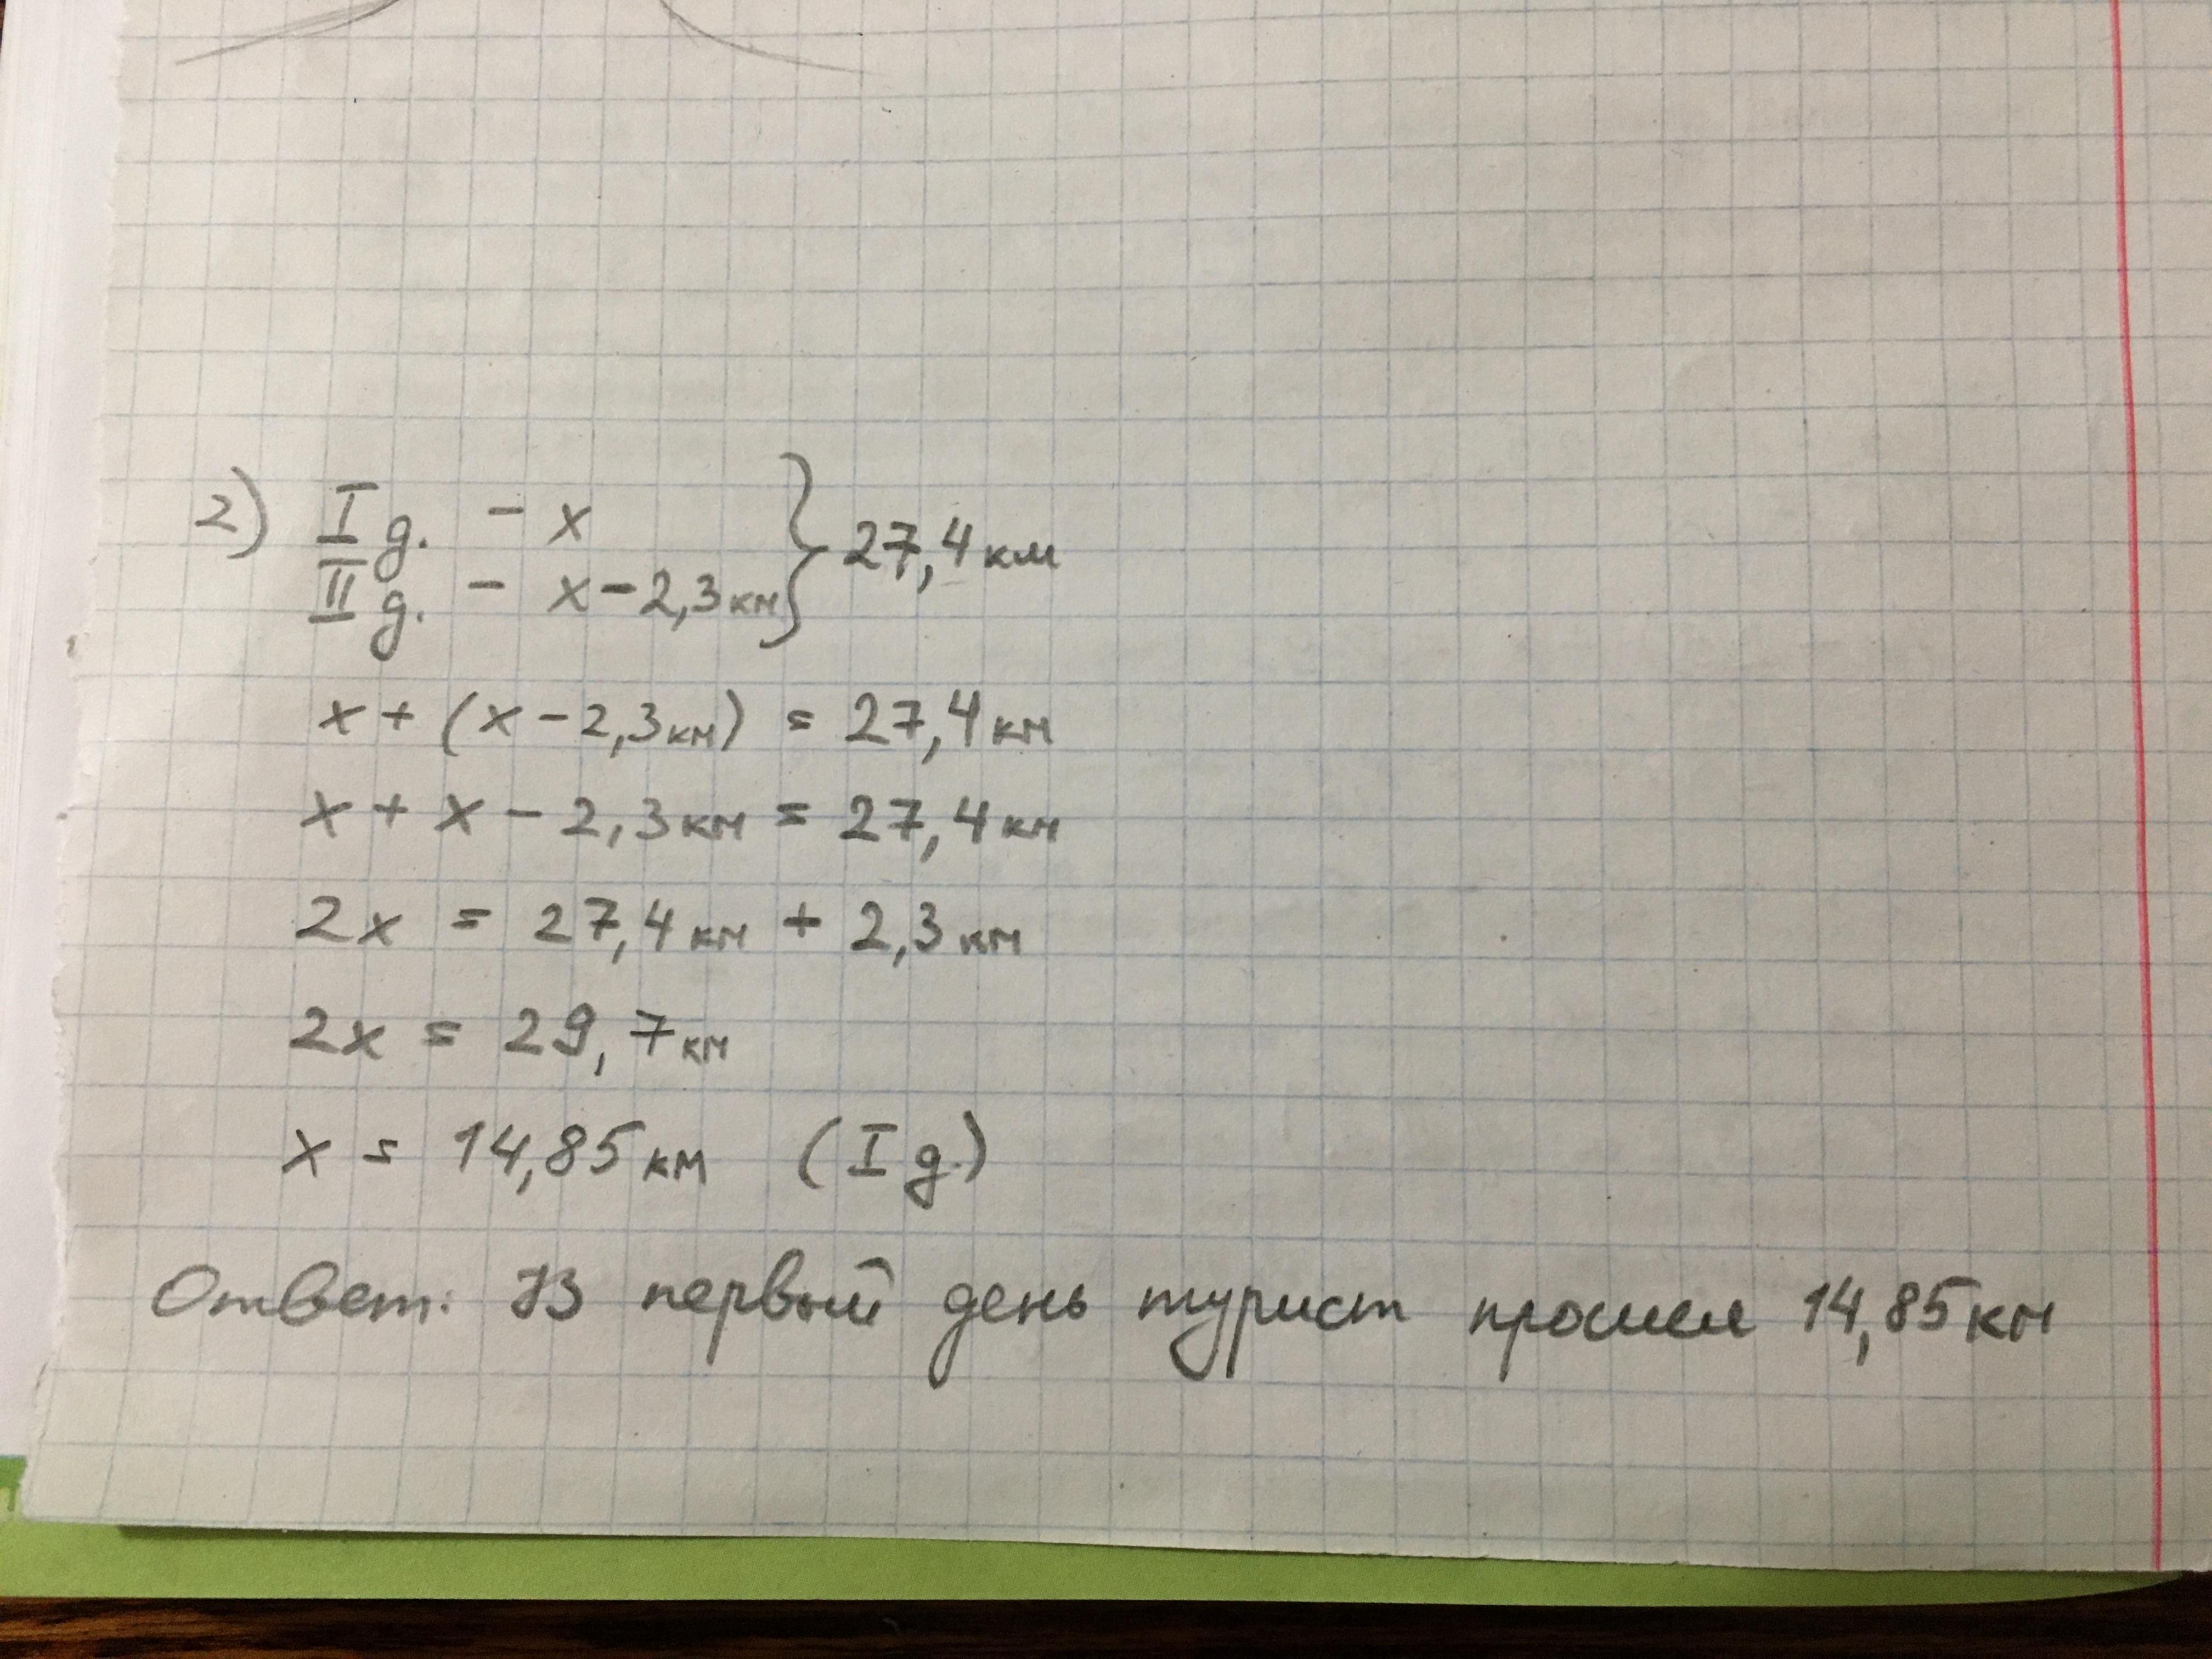 2) I д. - x } 27,4 км
II д. - x - 2,3 км
x + (x - 2,3 км) = 27,4 км
x + x - 2,3 км = 27,4 км
2x = 27,4 км + 2,3 км
2x = 29,7 км
x = 14,85 км (I д.)
Ответ: В первый день турист прошел 14,85 км